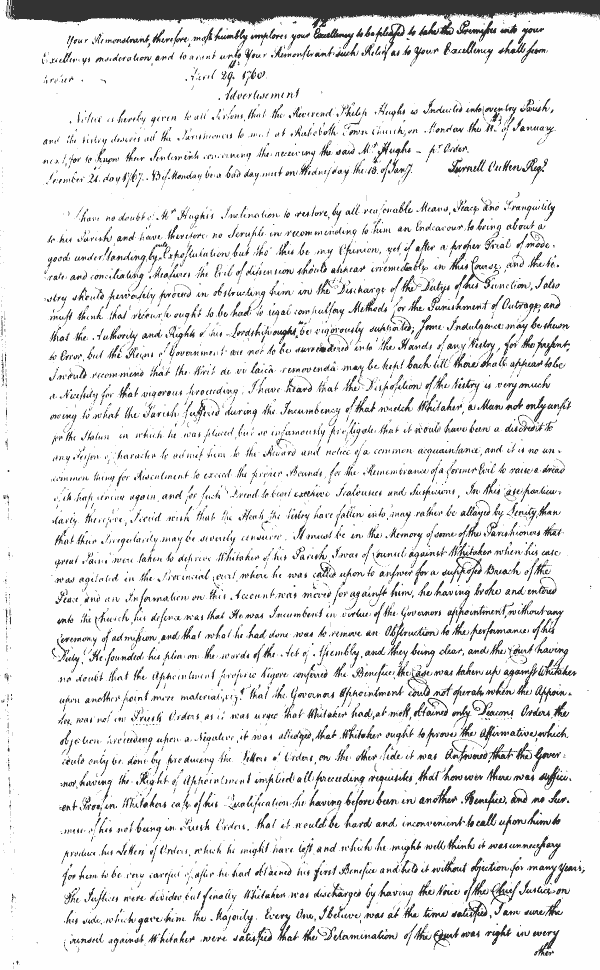 42
Your Remonstrant, therefore, most humbly implores your Excellency to be pleased to take the Premises into your
Excellencys nsideration, and to arant unto Your Remonstrant such Relief as to Your Excellency shall seem
April 29th 1760
Advertisement
Notice is hereby given to all Persons, that the Reverend Philip Hughs is Inducted into oventry Parish,
and the Vestry desires all the Parishioners to meet at Rahoboth Town Church, on Monday the 11th of January
next, for to know their Sentiments concerning the receiving the said Mr Hughs - pr Order.
ecember 22d day 1767. NB if Monday be a bad day, meet on Wednesday the 13th of Jany.
I have no doubt of Mr Hughs's Inclination to restore, by all reasonable Means, Peace and Tranquility
to his Parish, and have therefore no Scruple in recommending to him an Endeavour to bring about a
good understanding, by Expostulation but tho' this be my Opinion, yet if after a proper Trial of mode-
rate and conciliating Measures the Evil of dissension should appear irremediable in this Course, and the Ve-
stry should pervously proceed in obstructing him in the Discharge of the Dutys of his Function, I also
must think that recourse ought to be had to legal compulsary Methods for the Punishment of Outrage, and
that the Authority and Rights of his Lordship ought to be vigorously supported; some Indulgence may be shewn
to Error, but the Reins of Government are not to be surrendered into the Hands of any Vestry, for the present,
I would recommend that the Writ de vi laica removenda may be kept back till there shall appear to be
a Necessity for that vigorous proceeding. I have heard that the Disposition of the Vestry is very much
owing to what the Parish suffered during the Incumbency of that wretch Whitaker, a Man not only unfit
for the Station in which he was placed but so infamously profligate that it would have been a discredit to
any Person of Character to admit him to the Regard and notice of a common acquaintance, and it is no un-
common thing for Resentment to exceed the proper Bounds, for the Remembrance of a former Evil to raise a dread
of its happening again, and for such Dread to beget excessive Jealousies and Suspicions, In this case particu-
larly therefore, I could wish that the Heats the Vestry have fallen into, may rather be allayed by Lenity than
that their Irregularity may be severely censured. It must be in the Memory of some of the Parishioners that
great Pains were taken to deprive Whitaker of his Parish I was of Council against Whitaker when his case
was agitated in the Provincial Court, where he was called upon to answer for a supposed Breach of the
Peace and an Information on this Account was moved for against him, he having broke and entered
into the Church his defence was that He was Incumbent in virtue of the Governors appointment, without any
Ceremony of admission, and that what he had done was to remove an Obstruction to the performance of his
Duty. He founded his plea on the words of the Act of Assembly, and they being clear, and the Court having
no doubt that the appointment proprio vigore conferred the Benefice, the Case was taken up against Whitaker
upon another point more material, vizt. that the Governors Appointment could not operate when the Appoin-
tee was not in Priests Orders as it was urged that Whitaker had, at most, obtained only Deacons Orders, the
objection proceeding upon a Negative, it was alledged, that Whitaker ought to prove the Affirmative, which
could only be done by producing the Letters of Orders, on the other side it was Answered, that the Gover-
nor, having the Right of Appointment implied all preceding requisites, that however there was suffici-
ent Proof, in Whitakers case, of his Qualification, he having before been in another Benefice, and no Sur-
mise of his not being in Priests Orders, that it would be hard and inconvenient to call upon him to
produce his Letters of Orders, which he might have lost and which he might well think it was unnecessary
for him to be very careful of, after he had obtained his first Benefice and held it without objection for many Years,
The Justices were divided but finally Whitaker was discharged by having the Voice of the Chief Justice on
his side, which gave him the Majority. Every One, I believe, was at the time satisfied, I am sure the
Council against Whitaker were satisfied that the Determination of the Court was right in every
other